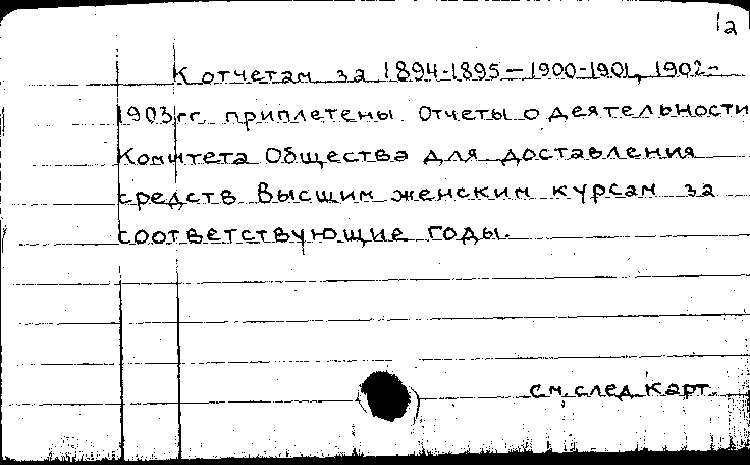 1а
К отчетам за 1894-1895 — 1900-1901, 1902-
1903 гг. приплетены Отчеты о деятельности
Комитета Общества для доставления
средств Высшим женским курсам за
соответствующие годы.
см. след. карт.